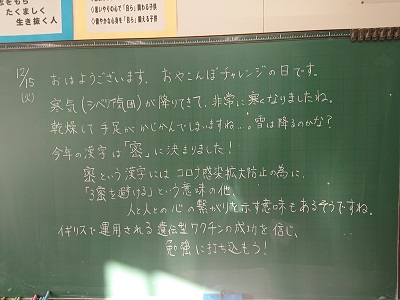 をもち
たくましく
生き抜く人
◇思いやりの心で「自ら」関わる子供
◇健やかな心身を「自ら」鍛える子供
12/15
(火)
おはようございます。おやこんぼチャレンジの日です。
寒気(シベリア気団)が降りてきて、非常に寒くなりましたね。
乾燥して手足がかじかんでしまいますね…。雪は降るのかな?
今年の漢字は「密」に決まりました!
密という漢字にはコロナ感染拡大防止の為に、
「3密を避ける」という意味の他、
人と人との心の繋がりを示す意味もあるそうですね。
イギリスで運用される遺伝型ワクチンの成功を信じ、
勉強に打ち込もう!